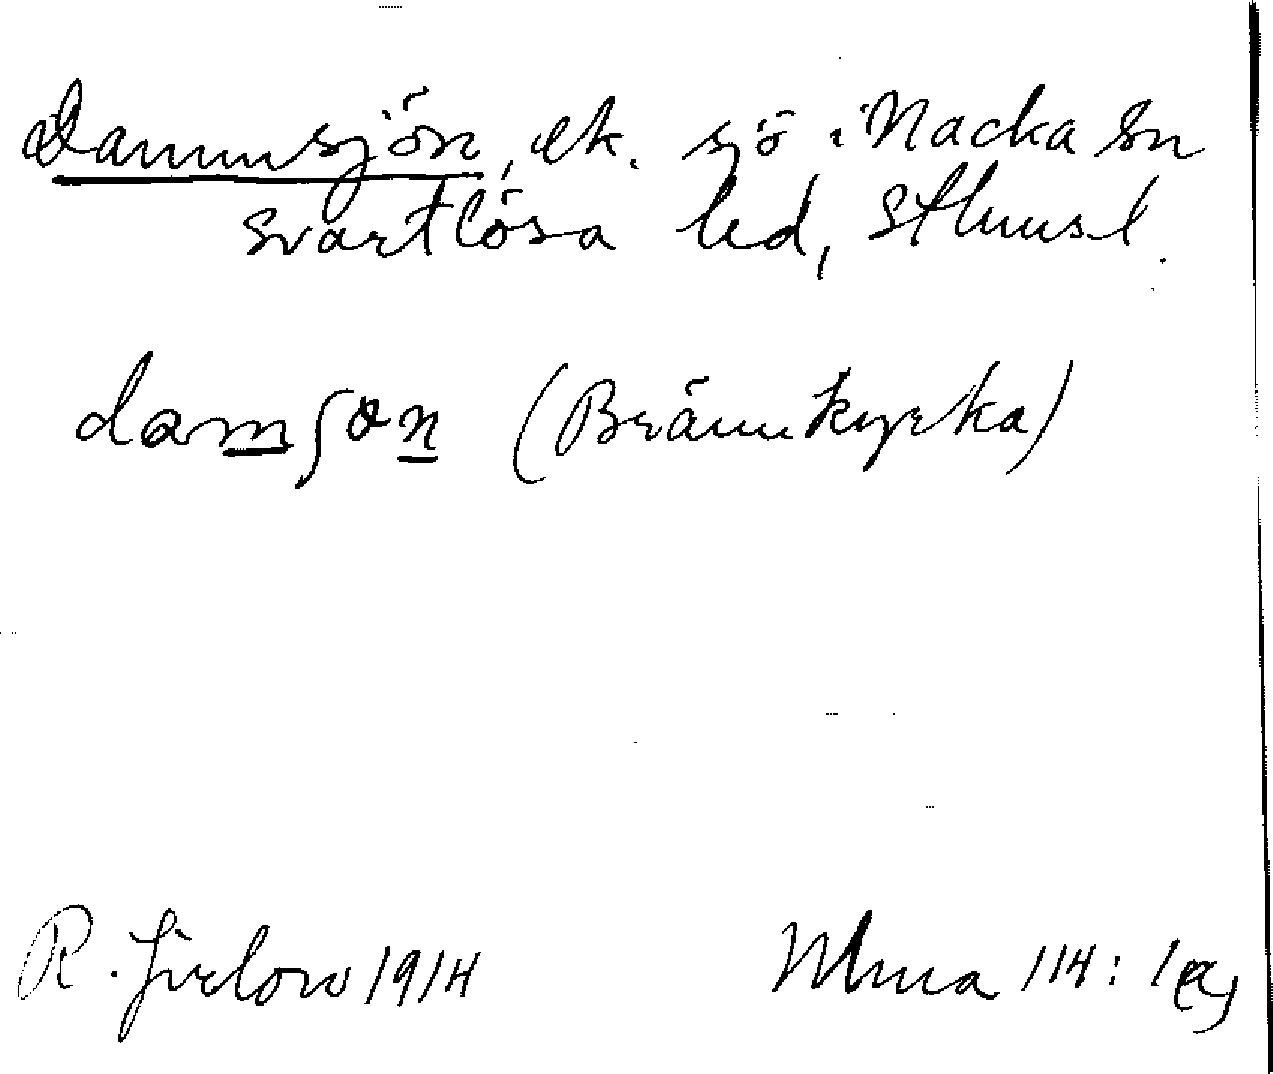 Dammsjön, ek. sjö i Nacka sn
Svartlösa hd, Sthmsl.
damʃɵn (Brännkyrka)
R. Jirlow 1914
Nhma 114: 1